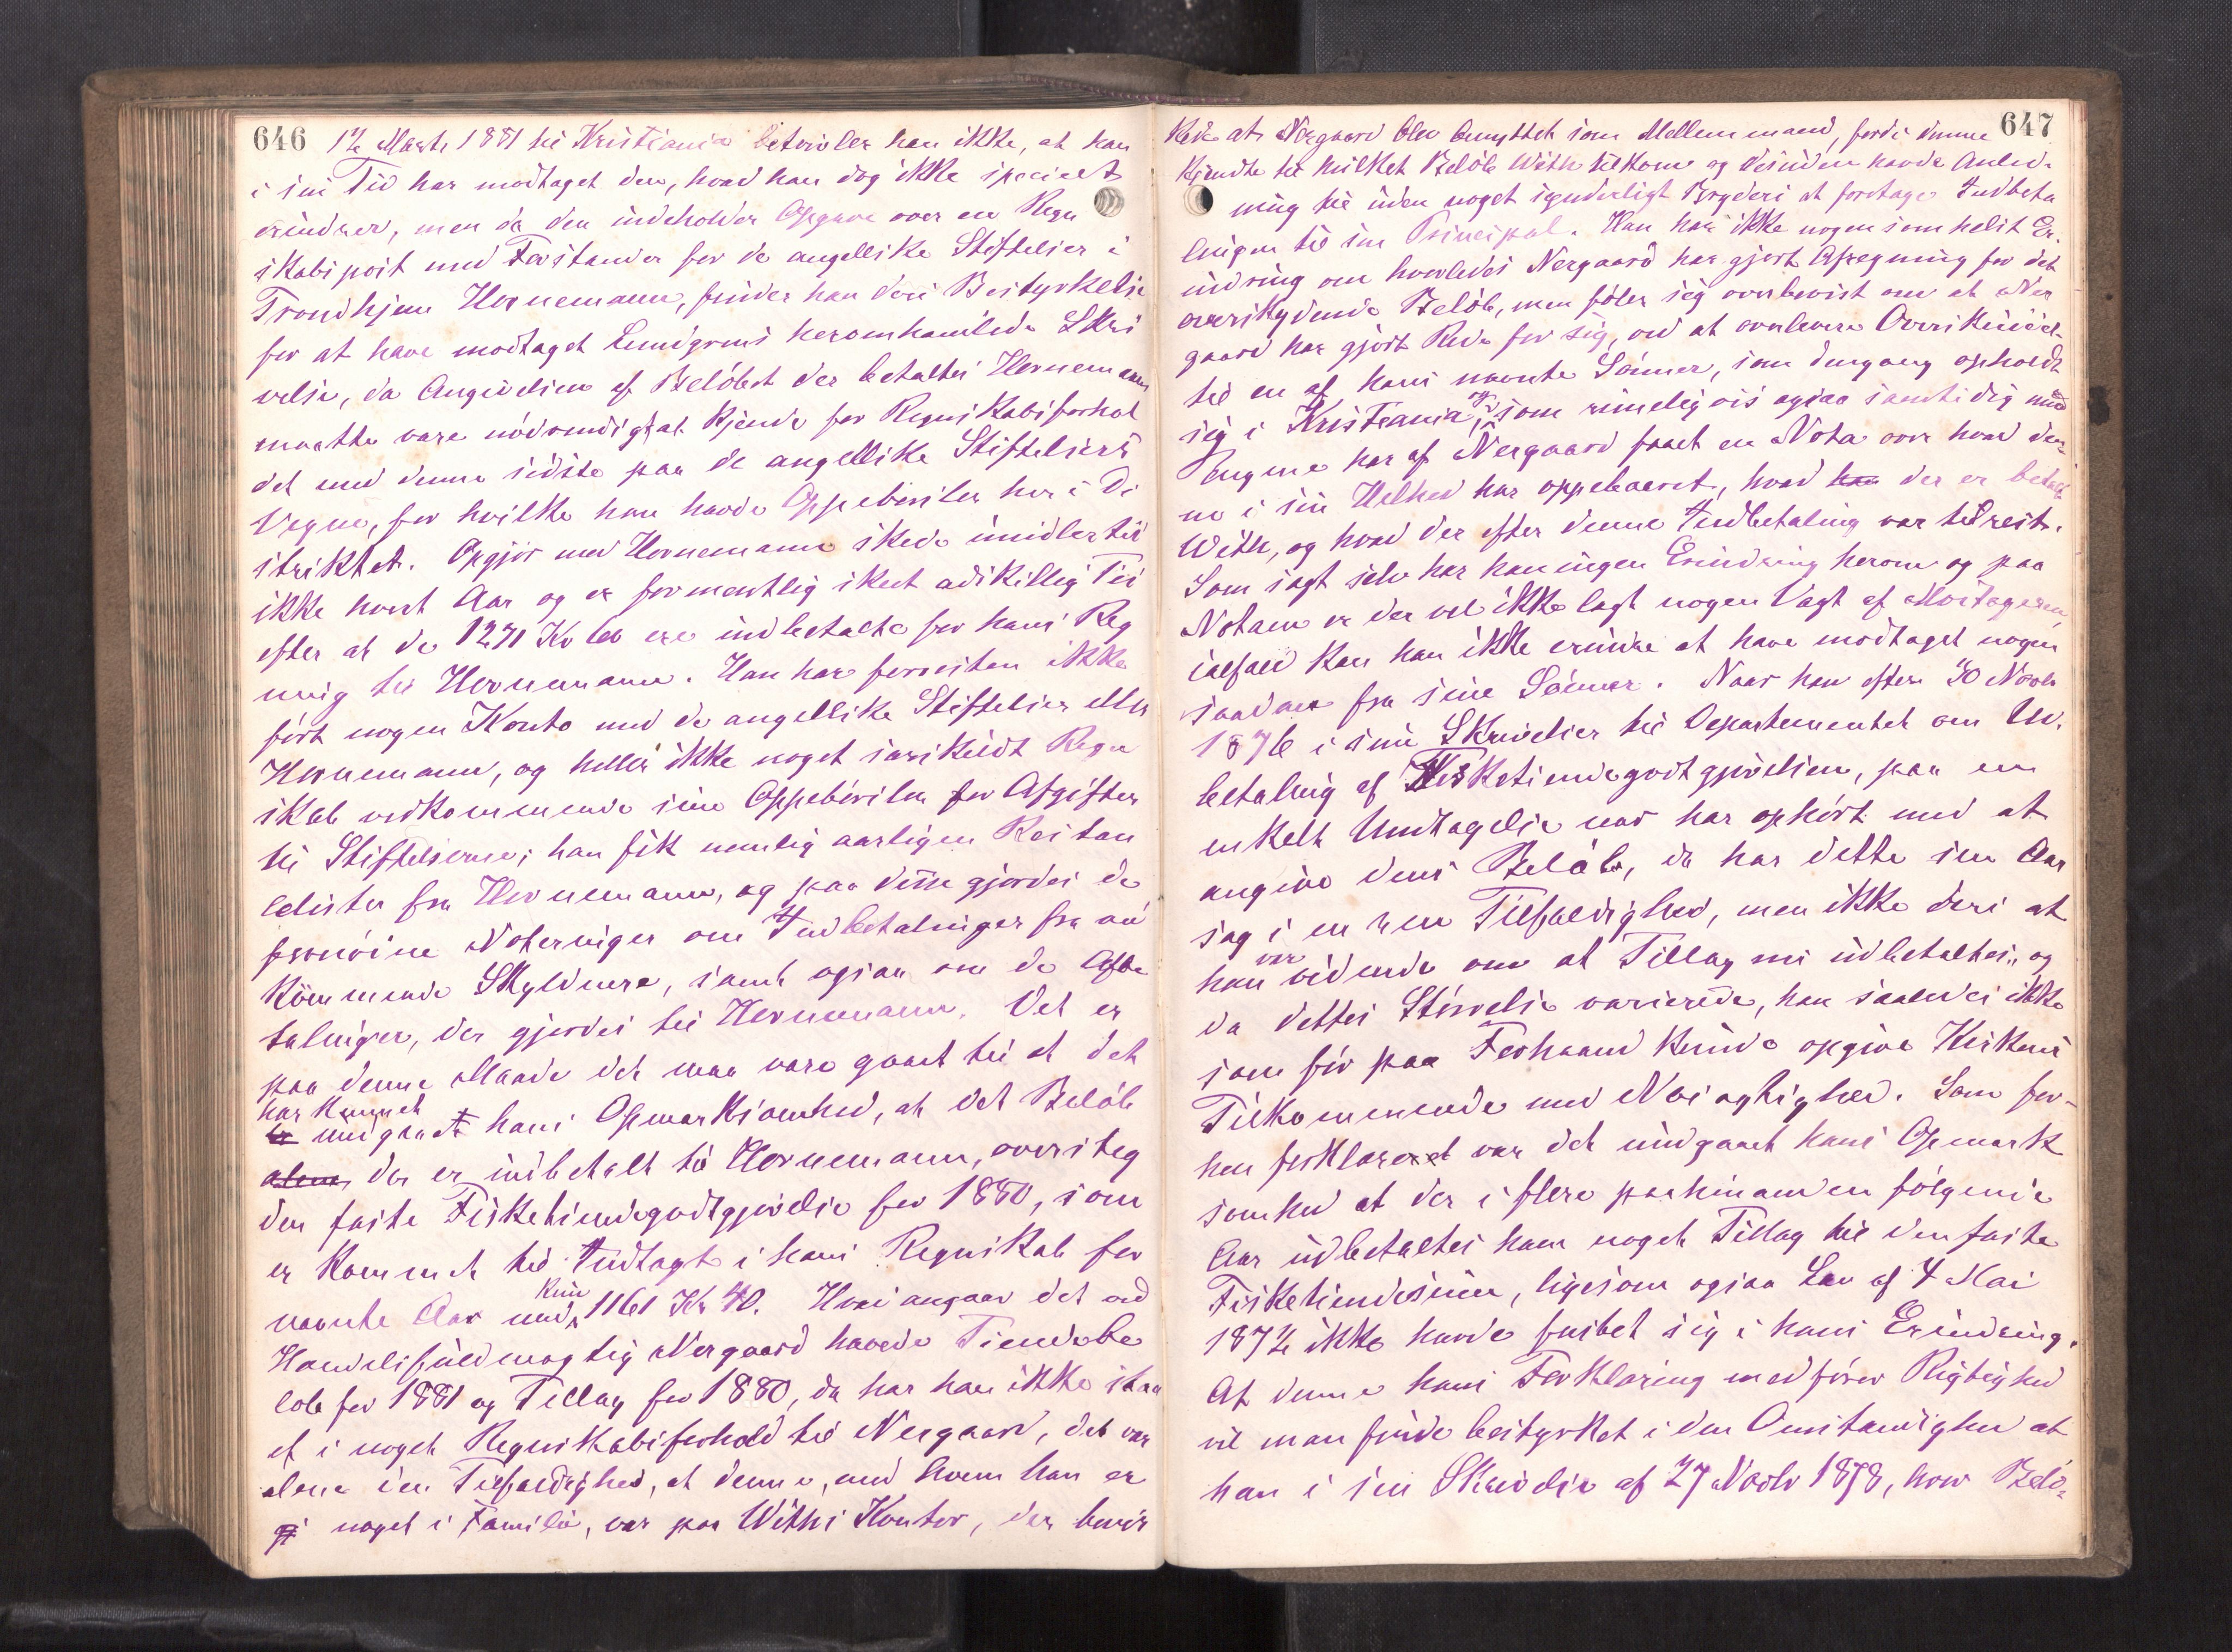 646
12 Marts 1881 til Kristiania betviler han ikke, at han
i sin Tid har modtaget den, hvad han dog ikke specielt
erindrer, men da den indeholder Opgave over en Regn
skabspost med Forstander for de angellske Stiftelser i
Trondhjem Hornemann, finder han deri Bestyrkelse
for at have modtaget Lundgrens heromhandlede Skri
velse, da Angivelsen af Beløbet der betaltes Hornemann
maatte være nødvendigt at kjende for Regnskabsforhol
det med denne sidste paa de angellske Stiftelsers
Vegne, for hvilke han havde Oppebørsler her i Di
striktet. Opgjør med Hornemann skede imidlertid
ikke hvert Aar og er formentlig skeet adskillig Tid
efter at de 1271 Kr ere indbetalte for hans Reg
ning til Hornemann. Han har forresten ikke
ført nogen Konto med de angellske Stiftelser eller
Hornemann, og heller ikke noget særskildt Regn
skab vedkommende sine Oppebørsler for Afgifter
til Stiftelserne; han fik nemlig aarligen Restan
celister fra Hornemann, og paa disse gjordes de
fornøine Noteringer om Indbetalninger fra ved
kommende Skyldnere, samt ogsaa om de Afbe
talninger, der gjordes til Hornemann. Det er
paa denne Maade det maa være gaaet til at det
har kunnet
er undgaaet hans Opmærksomhed, at det Beløb
alene der er indbetalt til Hornemann, oversteg
den faste Fisketiendegodtgjørelse for 1880, som
er kommet til Indtægt i hans Regnskab for
nævnte Aar med kun 1161 Kr 40. Hvad angaar det ved
Handelsfuldmægtig Nergaard hævede Tiendebe
løb for 1881 og Tillæg for 1880, da har han ikke staa
et i noget Regnskabsforhold til Nergaard, det var
alene den Tilfældighed, at denne, med hvem han er
noget i Familie, var paa Withs Kontor, der bevir

647
kede at Nergaard blev benyttet som Mellemmand, fordi denne
kjendte til hvilket Beløb With tilkom og desuden havde Anled-
ning til uden noget synderligt Bryderi at foretage Indbeta
lingen til sin Principal. Han har ikke nogensomhelst Er-
indring om hvorledes Nergaard har gjort Afregning for det
overskydende Beløb, men føler sig overbevist om at Ner
gaard har gjort Rede for sig, ved at overlevere Overskuddet
til en af hans nævnte Sønner, som dengang opholdt
sig i Kristiania, og som rimeligvis ogsaa samtidig med
Pengene har af Nergaard faaet en Nota over hvad den-
ne i sin Helhed har oppebaaret, hvad han der er betalt
With, og hvad der efter denne Indbetaling var til Rest.
Som sagt selv har han ingen Erindring herom og paa
Notaen er der vel ikke lagt nogen Vægt af Modtageren,
ialfald kan han ikke erindre at have modtaget nogen
saadan fra sine Sønner. Naar han efter 30 Novbr
1876 i sine Skrivelser til Departementet om Ud-
betaling af Fisketiendegodtgjørelsen, paa en
enkelt Undtagelse nær har ophørt med at
angive dens Beløb, da har dette sin Aar
sag i en ren Tilfældighed, men ikke deri at
han var vidende om at Tillæg nu udbetaltes, og
da dettes Størrelse varierede, han saaledes ikke
som før paa Forhaand kunde opgive Kirkens
Tilkommende med Nøiagtighed. Som for-
hen forklaret var det undgaaet hans Opmærk
somhed at der i flere paahinanden følgende
Aar udbetaltes ham noget Tillæg til den faste
Fisketiendesum, ligesom ogsaa Lov af 4 Mai
1872 ikke havde fæstet sig i hans Erindring.
At denne hans Forklaring medfører Rigtighed
vil man finde bestyrket i den Omstændighed at
han i sin Skrivelse af 27 Novbr 1878, hvor Belø-